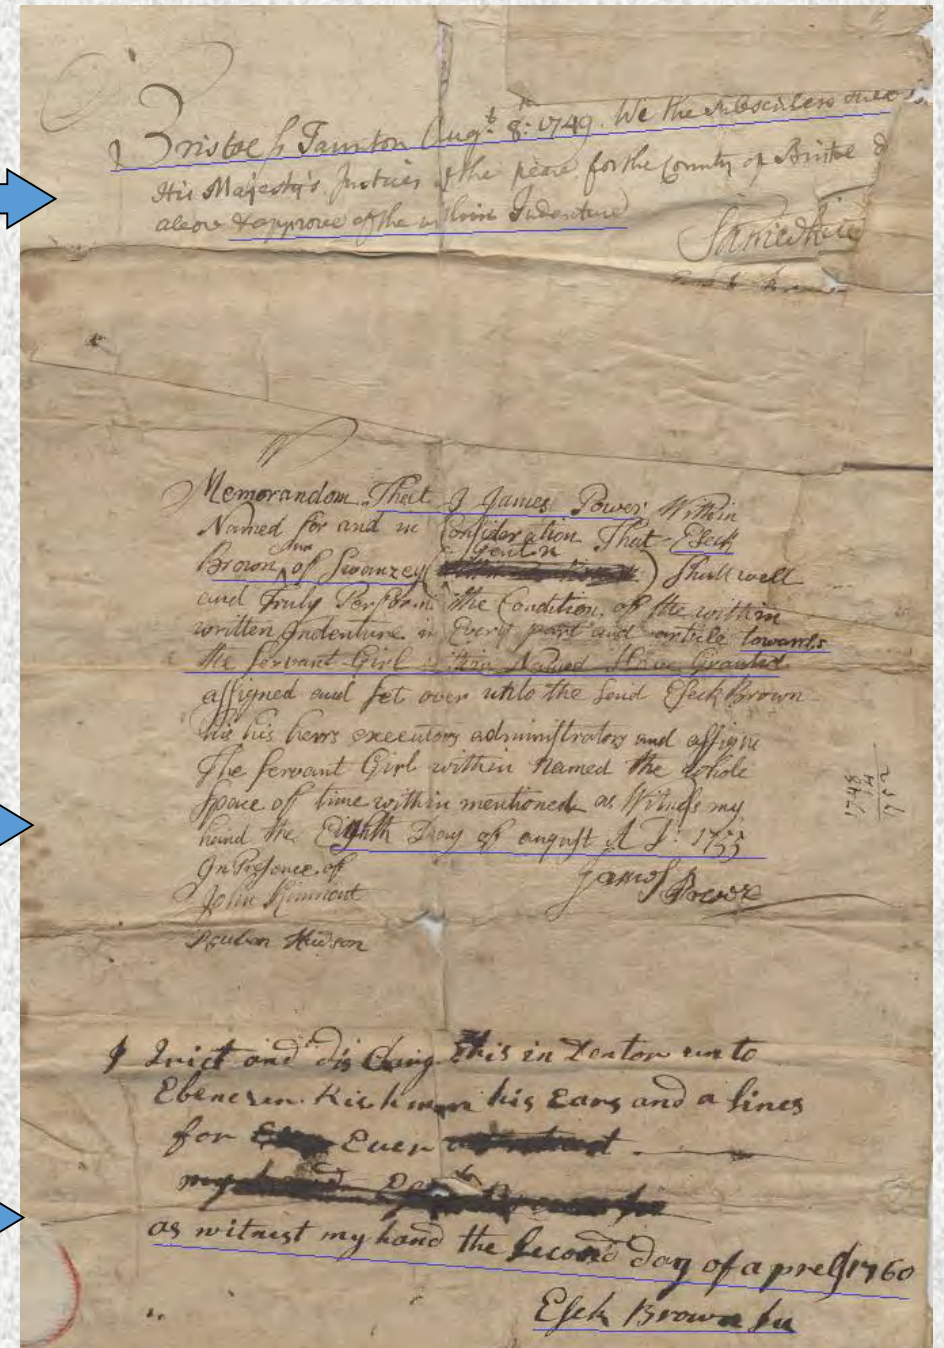 Bristoe ss Taunton Augt. 8th: 1749. We the subscribers
His Majesty's Justices of the peace for the County of Bristoe do
alow & approve of the within Indenture
Memorandom That I James Power Within
Named for and in Consideration That Eseck
Brown Junr of Swanzey Gentn Shall well
and Truly Perform the Condition of the within
written Indenture in Every part and article towards
the servant Girl within Named Have Granted
assigned and set over unto the said Eseck Brown
his heirs executors administrators and assigns
The servant Girl within named the whole
space of time within mentioned as Witness my
hand the Eighth Day of august A D: 1755
In Presence of
James Power
John Kinnicut
Reuban Hudson
1748
14
I Quict and dis Charg this in Dentor un to
Ebenezer his Ears and a sines
for Ever
my
as witnest my hand the Second day of aprel 1760
Esek Brown Ju